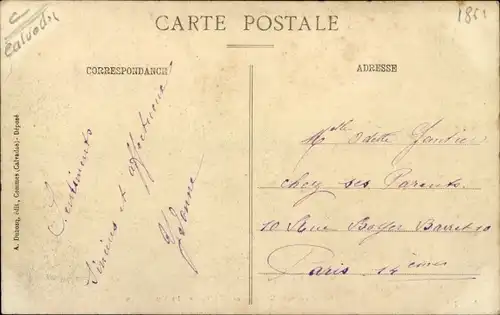 C
Calvados
1861
CARTE POSTALE
CORRESPONDANCE
ADRESSE
A. Dubosq, édit., Commes (Calvados).- Déposé
Sentiments
Sincères et affectueux
Yvonne
Melle Odette Gautier
chez ses Parents
10 Rue Boyer Barret 10
Paris 14 ème